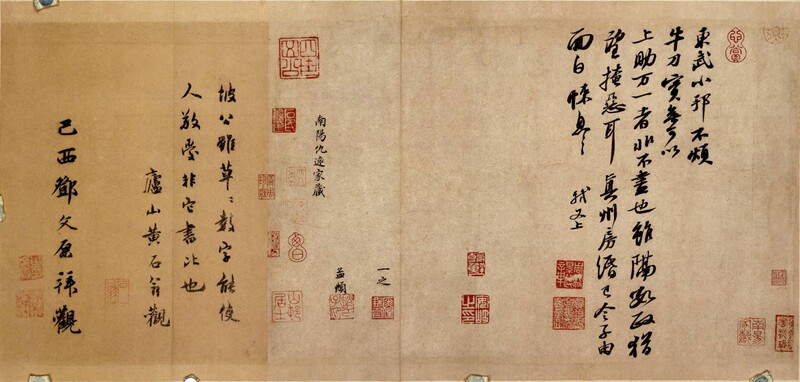 東武小邦不煩
牛刀實無可以
上助万一者非不盡也雖隔數政猶
望掩惡耳真州房緡已令子由
面白悚息〻
軾又上
一之
孟頫
南陽仇遠家藏
坡公雖草〻數字能使
人敬愛非它書比也
廬山黃石翁觀
己酉鄧文原拜觀